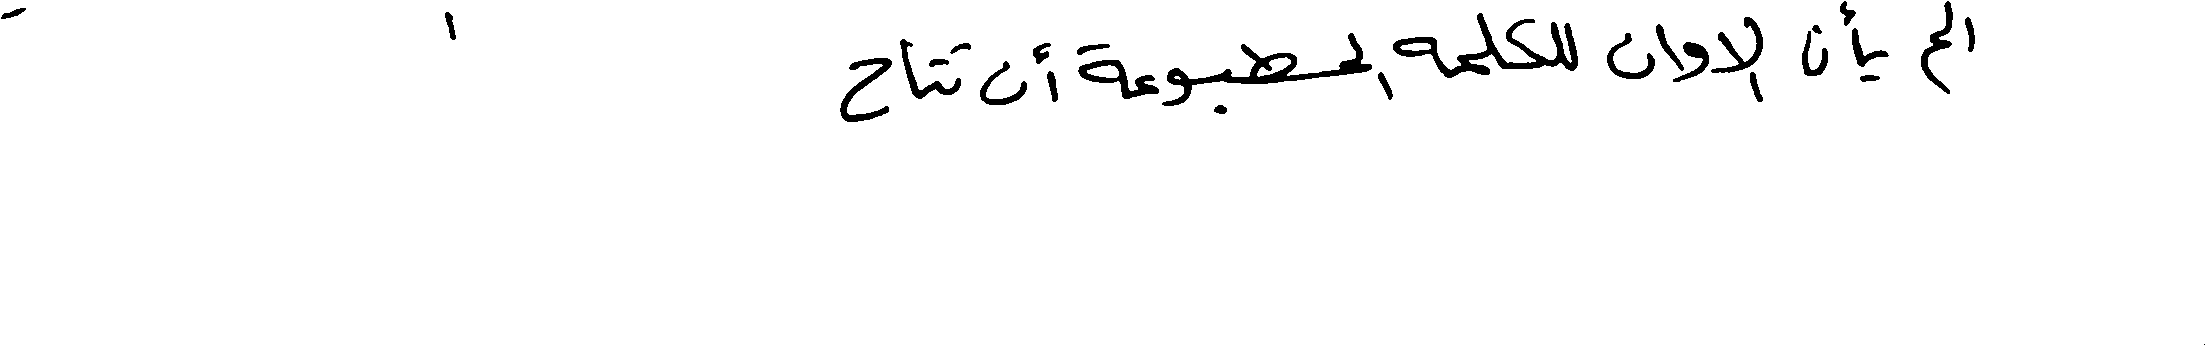 الم يأن الاوان للكلمة المطبوعة أن تتاح